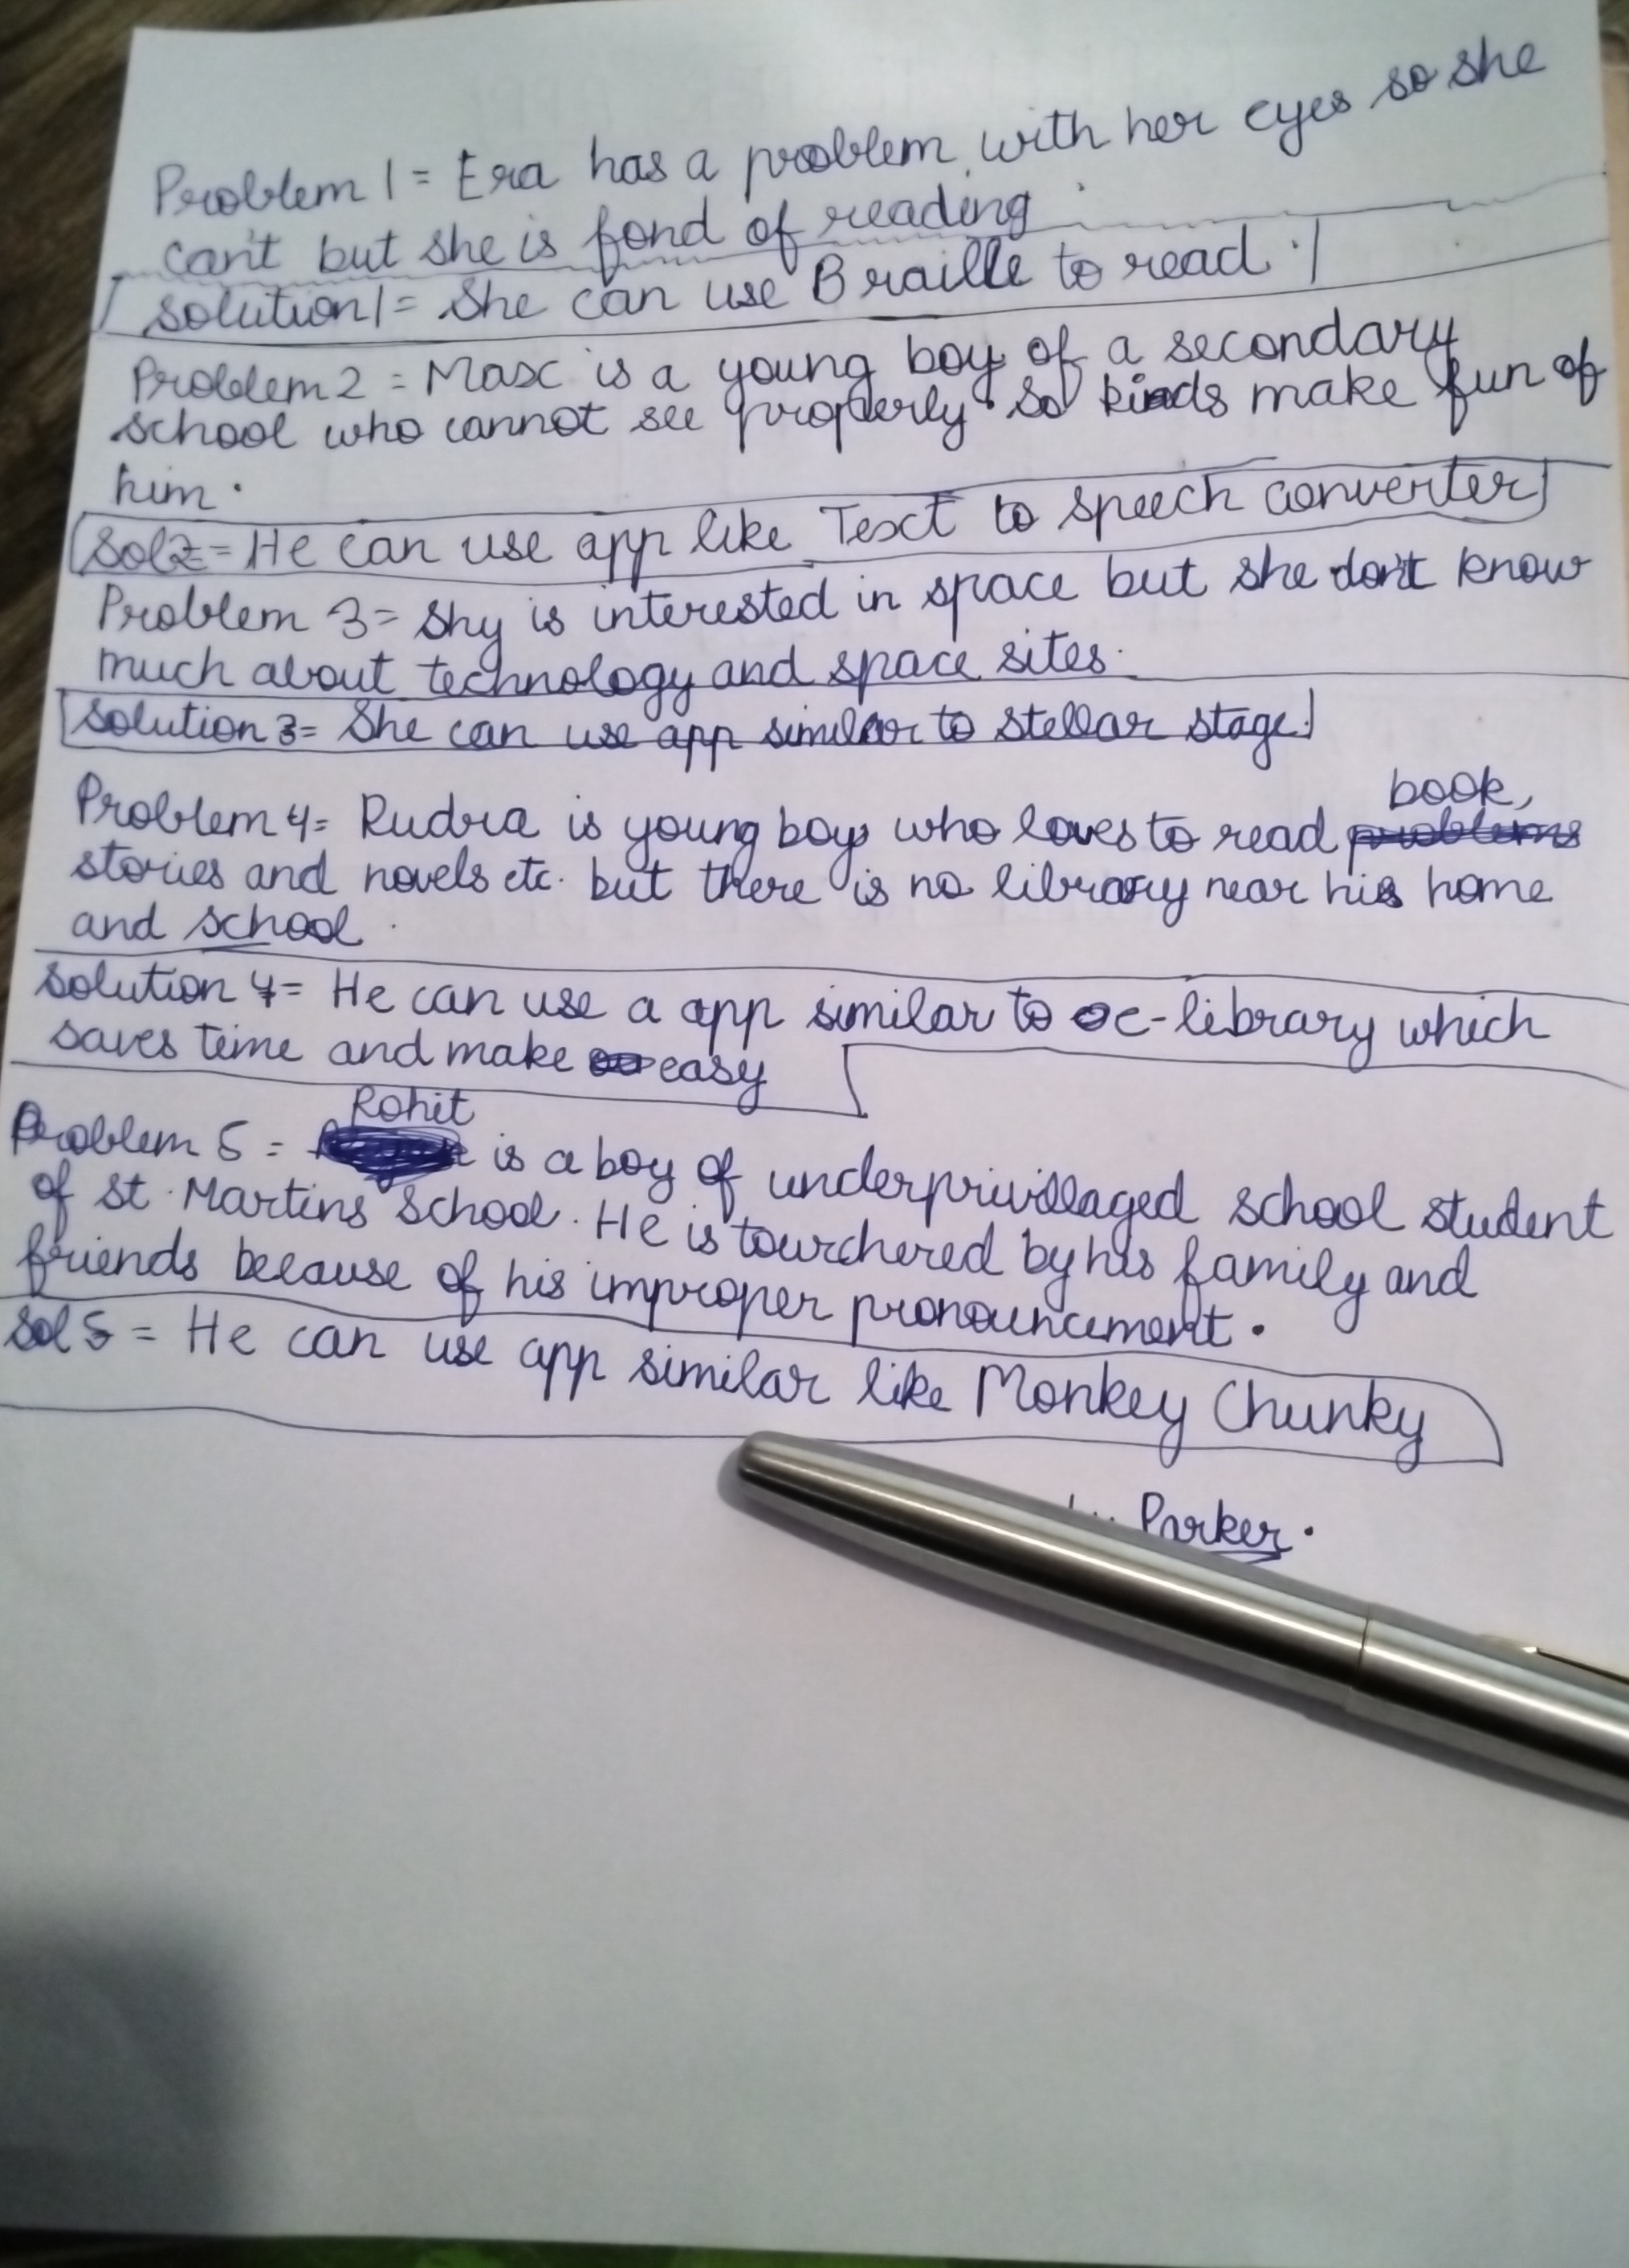 Problem 1 = Era has a problem with her eyes so she
can't but she is fond of reading
solution 1 = She can use Braille to read.
Problem 2 = Max is a young boy of a secondary
school who cannot see properly. So kinds make fun of
him.
Sol 2 = He can use app like Text to speech converter
Problem 3 = Shy is interested in space but she don't know
much about technology and space sites.
Solution 3 = She can use app similar to stellar stage.
Problem 4 = Rudra is young boy who loves to read problems book,
stories and novels etc. but there is no library near his home
and school.
Solution 4 = He can use a app similar to e-library which
saves time and make easy
Problem 5 = Rohit is a boy of underprivillaged school student
of St. Martins School. He is tourchered by his family and
friends because of his improper pronouncement.
Sol 5 = He can use app similar like Monkey Chunky
Parker.